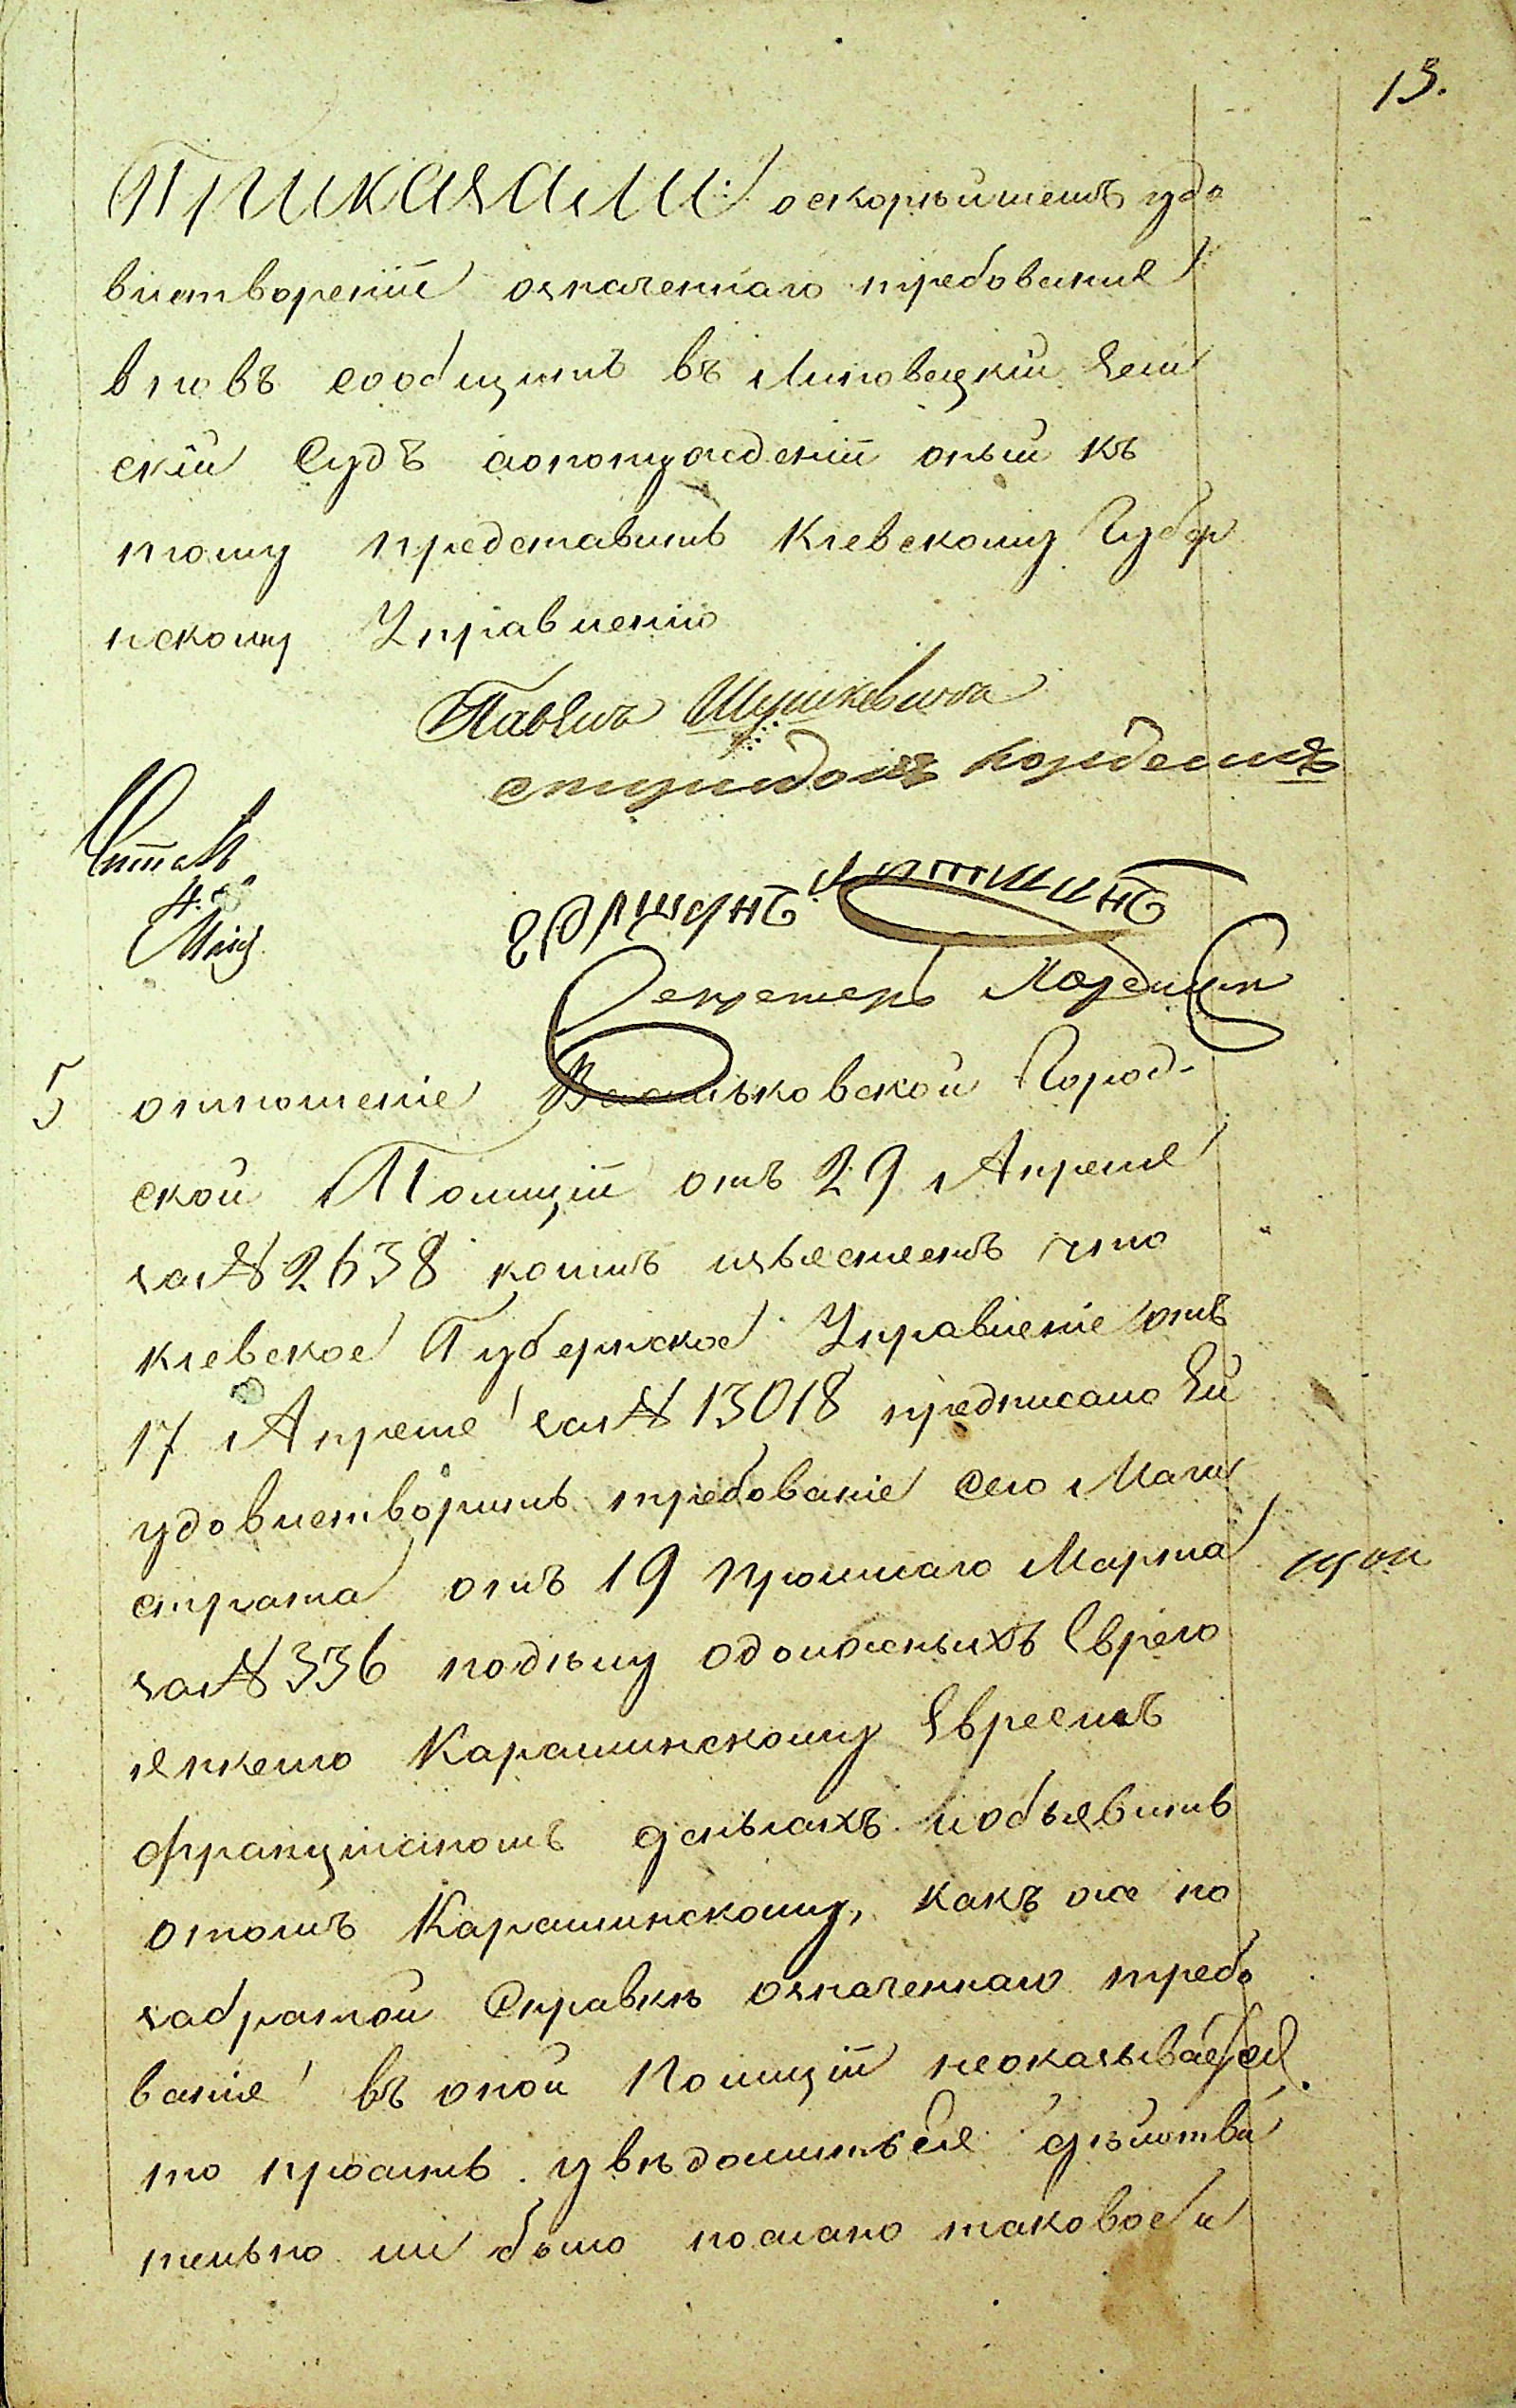 13.
Приказали: оскорѣйшемъ удо
влетвореніи означеннаго требованія
вновъ сообщить въ Липовецкій Зем
скій Судъ аопонуждѣніи оный къ
тому представить Кіевскому Губер
нскому Управленію
Павелъ
Спиридонъ
Читалъ
Секретарь
5 отношеніе Васильковской Город-
ской Полиціи отъ 29 Апреля
за № 2638 коимъ изъясняетъ что
Кіевское Губернское Управленіе отъ
17 Апреля за № 13018 предписало Ей
удовлетворить требованіе сего Маги
страта отъ 19 прошлаго Марта
за № 336 подѣлу одолжныхъ Еврею
Янкелю Карашинскому Евреемъ
деньгахъ иобъявить
отомъ Карашинскому, какъ же по
забратой Справкѣ означеннаго требо
ванія въ оной Полиціи неоказывается
то проситъ увѣдомитъ ея дѣйстви
тельно ли было послано таковое и